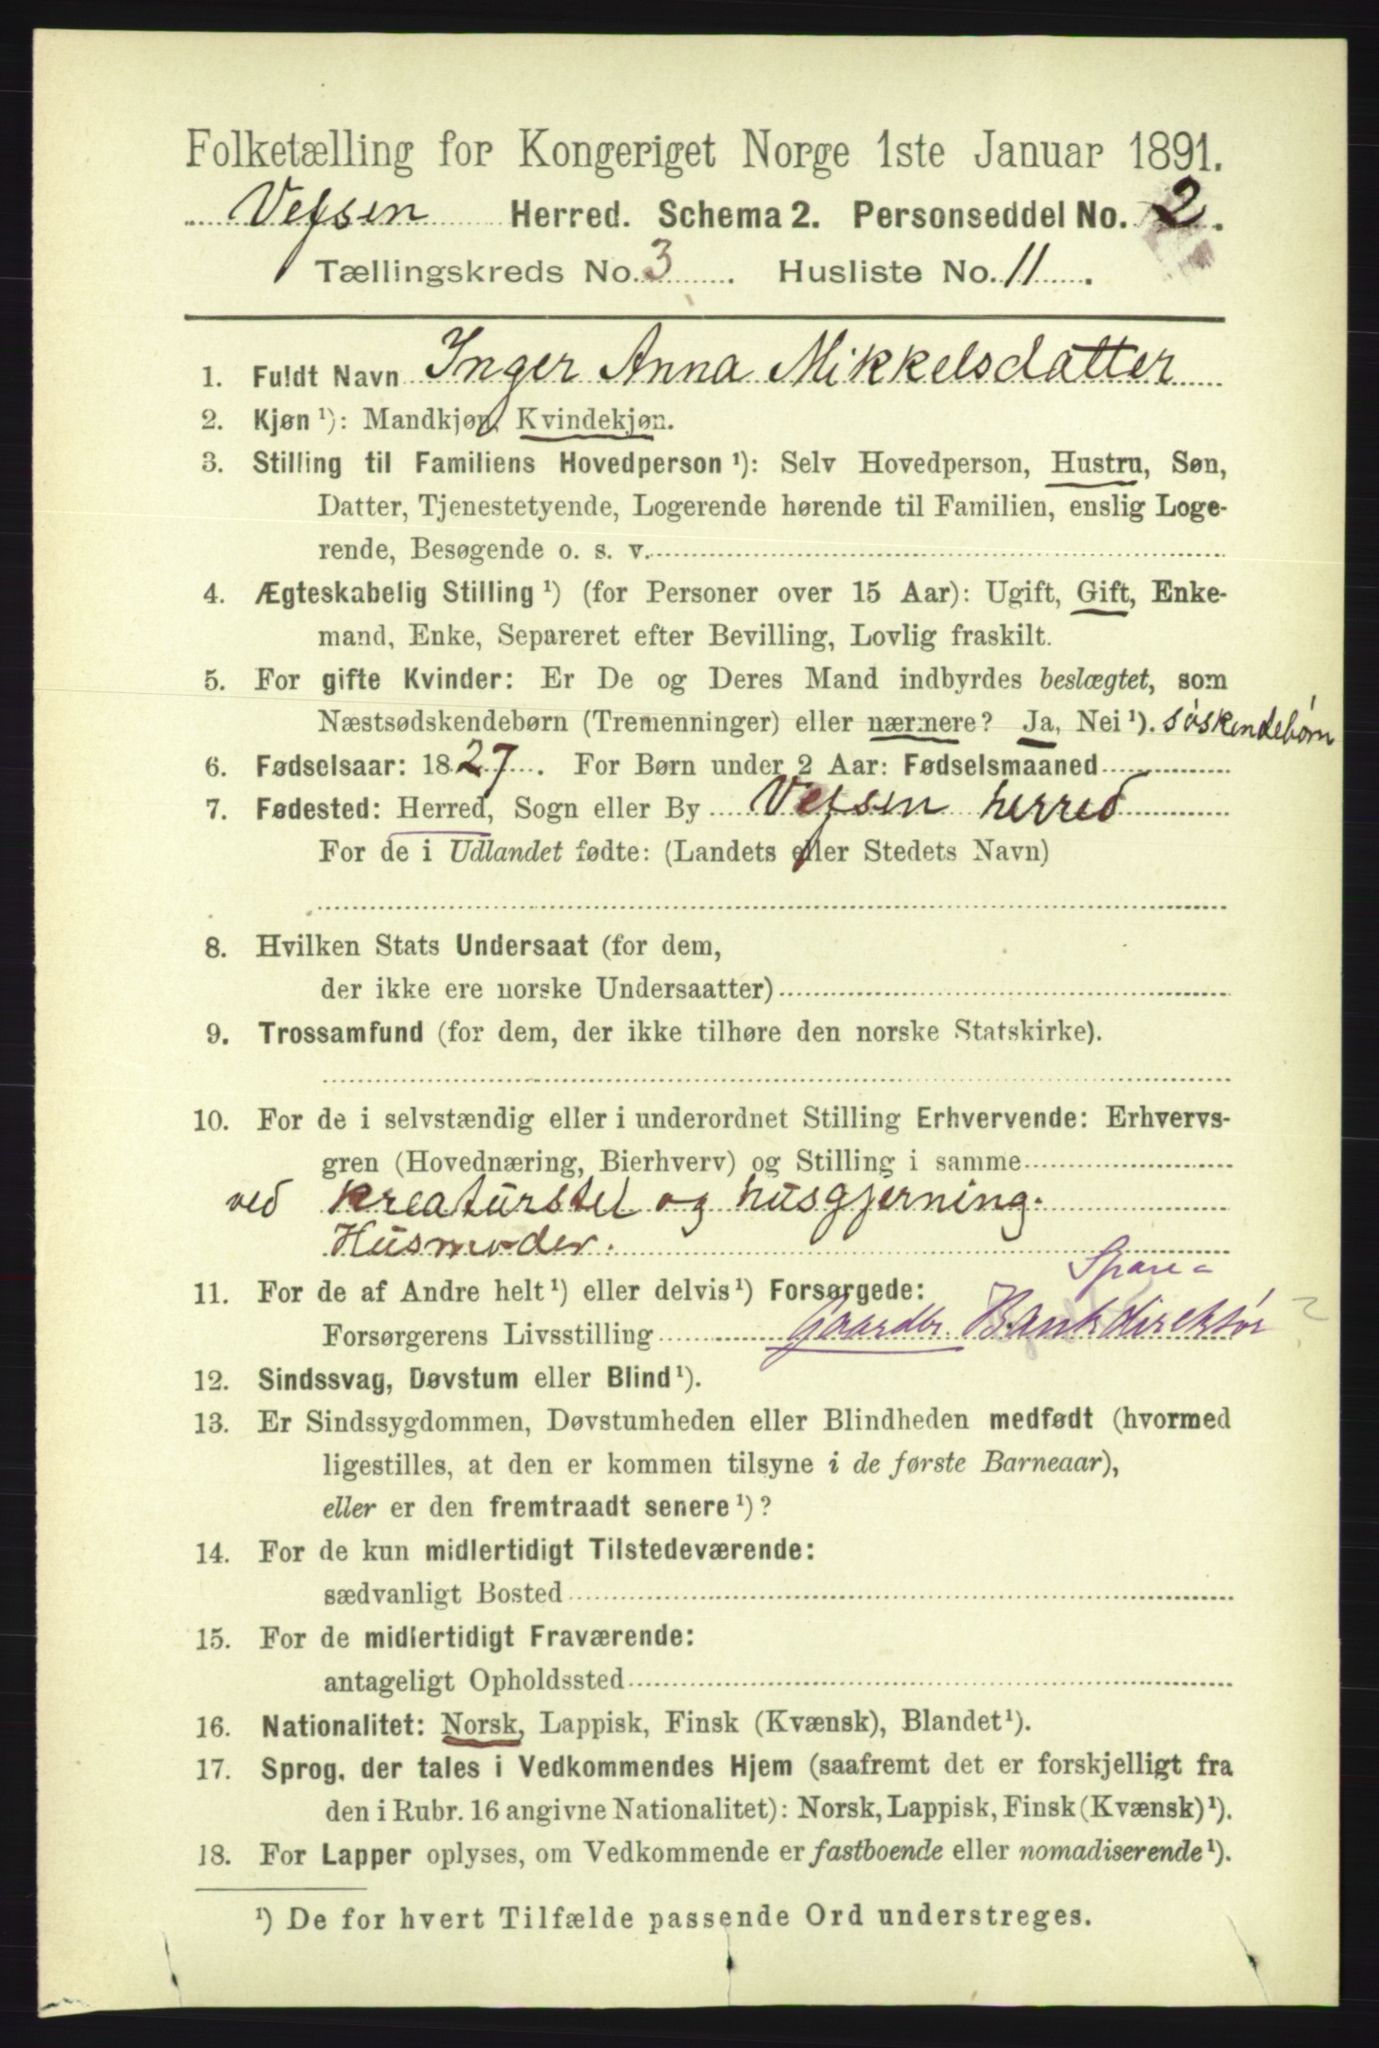 Folketælling for Kongeriget Norge 1ste Januar 1891.
Vefsen Herred. Schema 2. Personseddel No. 2.
Tællingskreds No. 3. Husliste No. 11.
1. Fuldt Navn Inger Anna Mikkelsdatter
2. Kjøn ¹): Mandkjøn, Kvindekjøn.
3. Stilling til Familiens Hovedperson ¹): Selv Hovedperson, Hustru, Søn,
Datter, Tjenestetyende, Logerende hørende til Familien, enslig Loge-
rende, Besøgende o. s. v.
4. Ægteskabelig Stilling ¹) (for Personer over 15 Aar): Ugift, Gift, Enke-
mand, Enke, Separeret efter Bevilling, Lovlig fraskilt.
5. For gifte Kvinder: Er De og Deres Mand indbyrdes beslægtet, som
Næstsødskendebørn (Tremenninger) eller nærmere? Ja, Nei ¹). søskendebørn
6. Fødselsaar: 1827. For Børn under 2 Aar: Fødselsmaaned
7. Fødested: Herred, Sogn eller By Vefsen herred
For de i Udlandet fødte: (Landets eller Stedets Navn)
8. Hvilken Stats Undersaat (for dem,
der ikke ere norske Undersaatter)
9. Trossamfund (for dem, der ikke tilhøre den norske Statskirke).
10. For de i selvstændig eller i underordnet Stilling Erhvervende: Erhvervs-
gren (Hovednæring, Bierhverv) og Stilling i samme
ved kreaturstel og husgjerning.
Husmoder.
Spare-
11. For de af Andre helt ¹) eller delvis ¹) Forsørgede:
Forsørgerens Livsstilling Gaardbr. Bankdirektør ?
12. Sindssvag, Døvstum eller Blind ¹).
13. Er Sindssygdommen, Døvstumheden eller Blindheden medfødt (hvormed
ligestilles, at den er kommen tilsyne i de første Barneaar),
eller er den fremtraadt senere ¹)?
14. For de kun midlertidigt Tilstedeværende:
sædvanligt Bosted
15. For de midlertidigt Fraværende:
antageligt Opholdssted
16. Nationalitet: Norsk, Lappisk, Finsk (Kvænsk), Blandet ¹).
17. Sprog, der tales i Vedkommendes Hjem (saafremt det er forskjelligt fra
den i Rubr. 16 angivne Nationalitet): Norsk, Lappisk, Finsk (Kvænsk) ¹).
18. For Lapper oplyses, om Vedkommende er fastboende eller nomadiserende ¹).
¹) De for hvert Tilfælde passende Ord understreges.